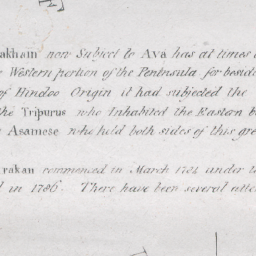 akhain now Subject to Ava has at times
Western portion of the Peninsula for beside
of Hindoo Origin it had subjected the
the Tripurus who Inhabited the Eastern b
Asamese who held both sides of this gre
rakan commenced in March 1784 under
in 1786. There have been several